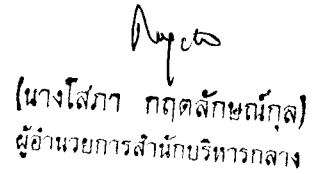 (นางโสภา กฤตลักษณ์กุล)
ผู้อำนวยการสำนักบริหารกลาง